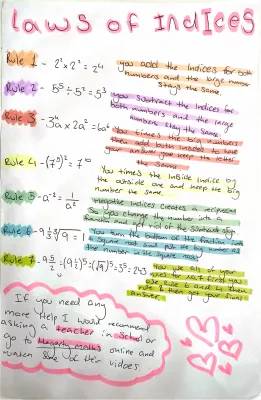 Laws of Indices
Rule 1 - 2² x 2² = 2⁴
you add the indices for both
numbers and the big number
stays the same.
Rule 2 - 5⁵ ÷ 5² = 5³
you subtract the indices for
both numbers and the large
numbers stay the same.
Rule 3 - x 2a² = 6a⁶
You times the big numbers
then add both indices in the
your answer and keep the letter
the same
Rule 4 - (7⁵)² = 7¹⁰
You times the inside indice by
the outside one and keep the big
number the same.
Rule 5 - a⁻² = 1/a²
negative indices creates a reciprocal
you change the number into a
fraction and get rid of the
Rule 6 - = 9
You turn the of the fraction into
a square root and put the big number as
the number in the square root
Rule 7 - = 3⁵ = 243
use rule 6 and
answer
If you need any
more help I would recommend
asking a teacher in school or
go to Hegarty maths online and
watch some of their videos